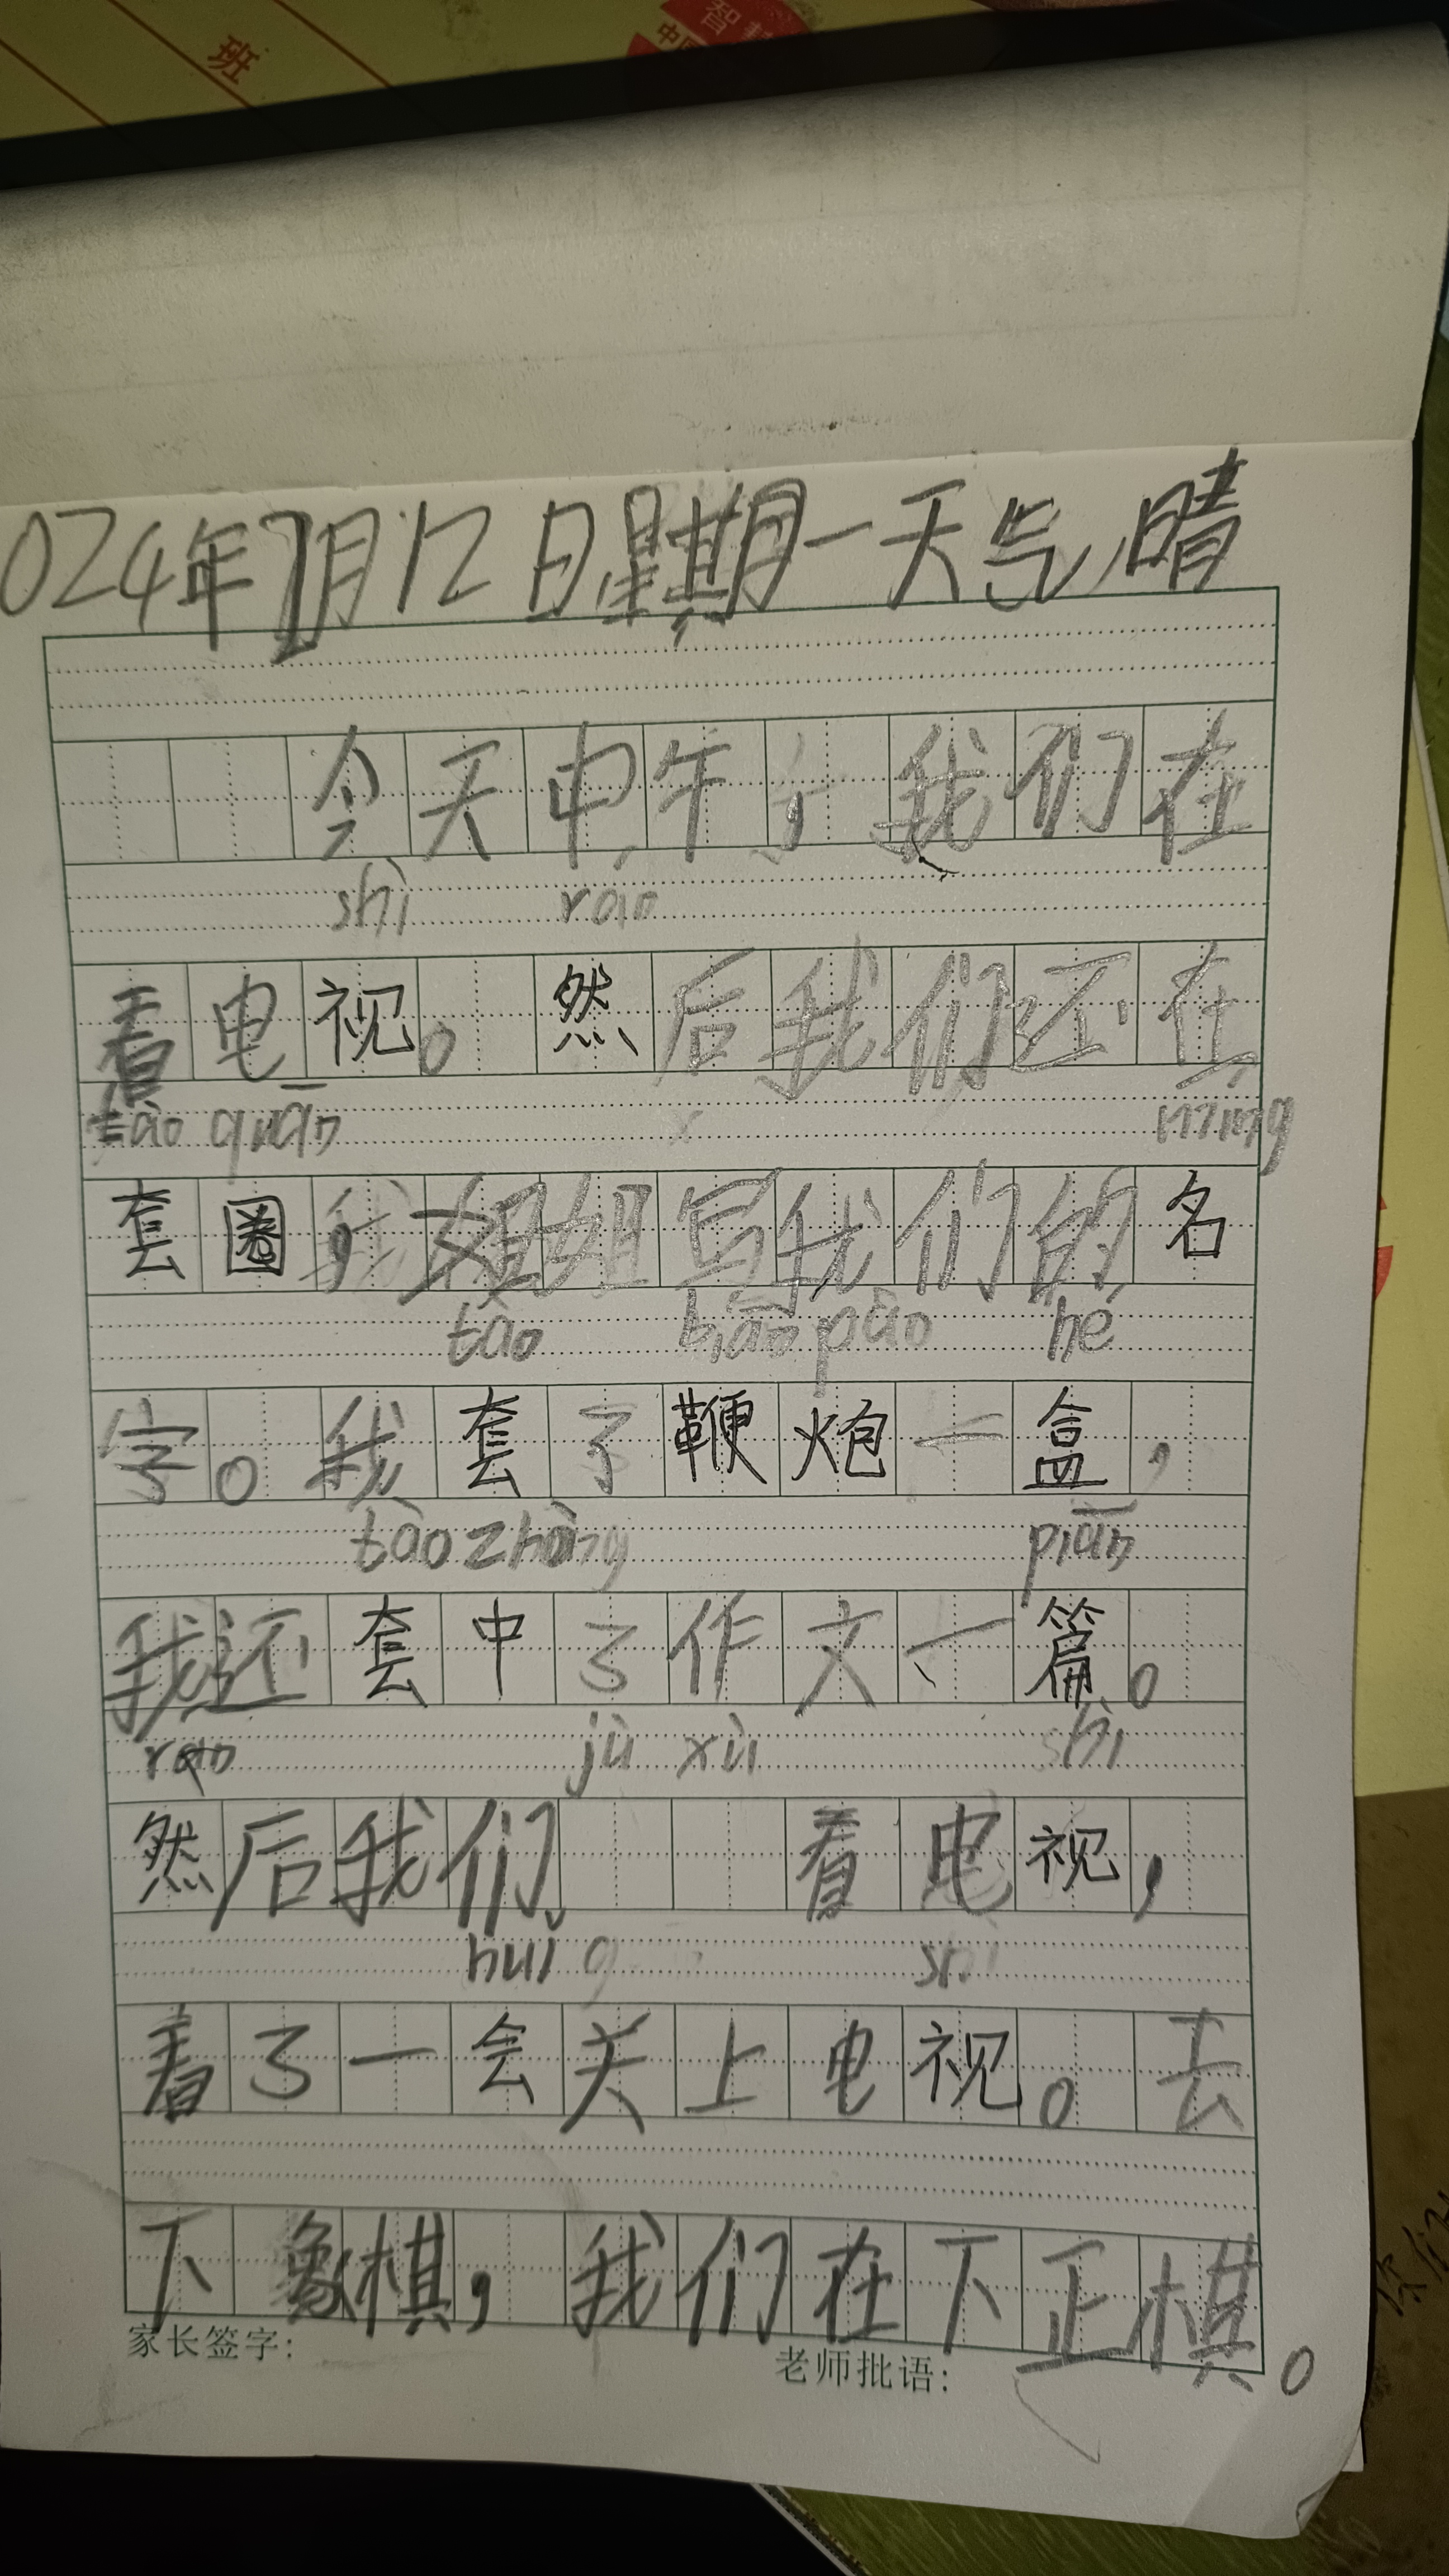 班
智慧
中国
024年2月12日星期一天气晴
今天中午，我们在
shì rán
看电视。然后我们还在
tào quān míng
套圈，姐姐写我们的名
tào biān pào hé
字。我套了鞭炮一盒，
tào zhòng piān
我还套中了作文一篇。
rán jì xù shì
然后我们 看电视，
huì shì
看了一会关上电视。去
下象棋，我们在下正棋。
家长签字： 老师批语：